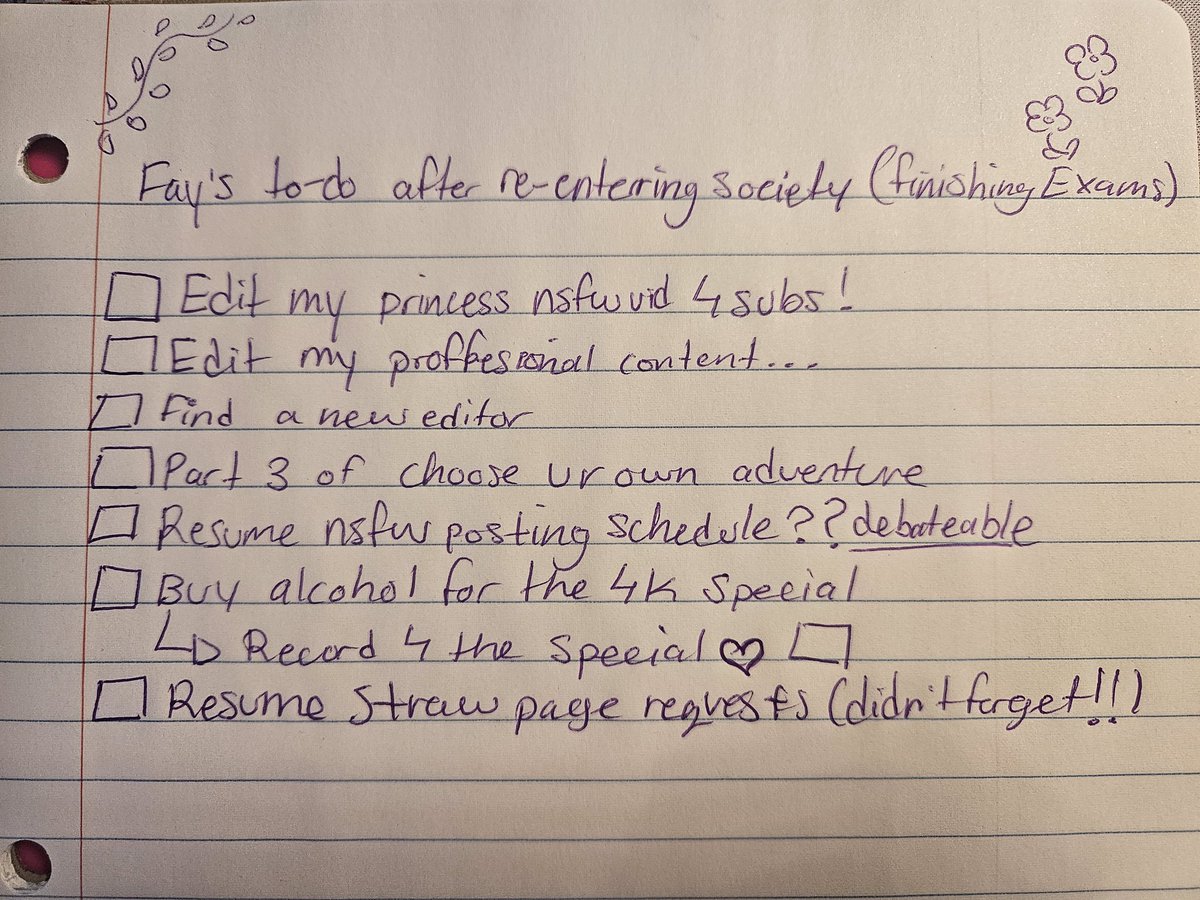 Fay's to-do after re-entering society (finishing Exams)
Edit my princess nsfw vid 4 subs!
Edit my proffesional content...
Find a new editor
Part 3 of choose ur own adventure
Resume nsfw posting schedule?? debateable
Buy alcohol for the 4K special
↳ Record 4 the special ♡
Resume Straw page requests (didn't forget!!)